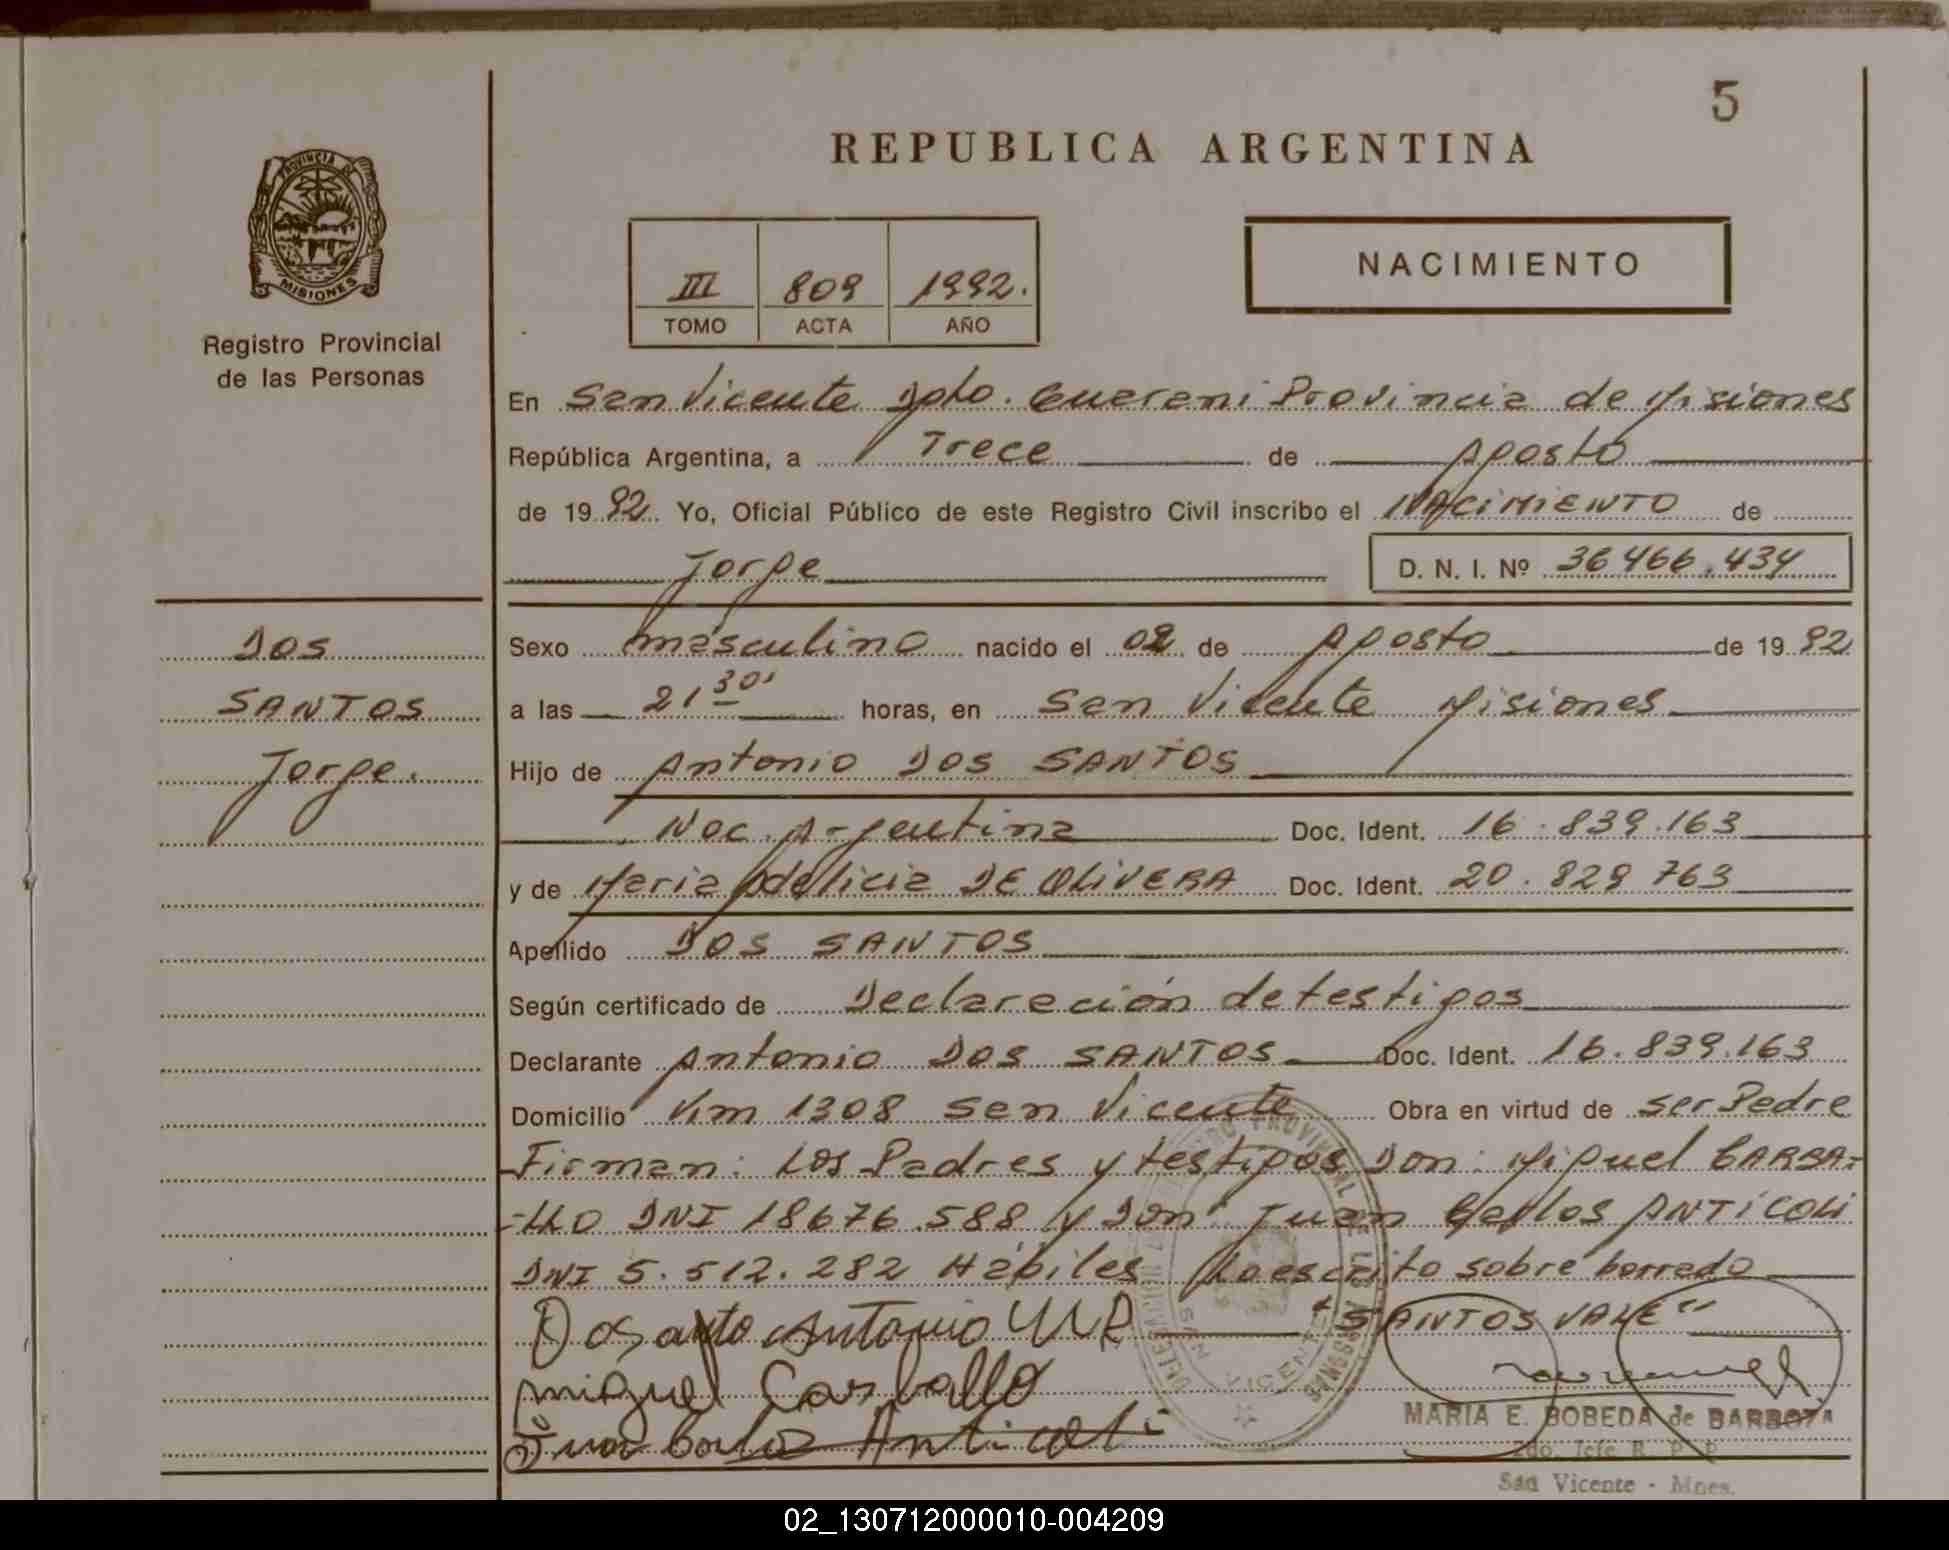 5
REPUBLICA ARGENTINA
PROVINCIA DE
MISIONES
Registro Provincial
de las Personas
III 809 1992.
TOMO ACTA AÑO
NACIMIENTO
En San Vicente Dpto. Guarani Provincia de Misiones
República Argentina, a Trece de Agosto
de 1992 Yo, Oficial Público de este Registro Civil inscribo el NACIMIENTO de
Jorge D. N. I. Nº 36466.434
DOS
SANTOS
Jorge.
Sexo masculino nacido el 02 de Agosto de 1992
a las 21 30' horas, en San Vicente Misiones
Hijo de Antonio DOS SANTOS
Nac. Argentina Doc. Ident. 16.839.163
y de Maria Adelicia DE OLIVERA Doc. Ident. 20.829 763
Apellido DOS SANTOS
Según certificado de Declaración de testigos
Declarante Antonio DOS SANTOS Doc. Ident. 16.839.163
Domicilio Km 1308 San Vicente Obra en virtud de ser Padre
Firman: Los Padres y testigos Don: Miguel CARBA-
-LLO DNI 18676.588 y Don Juan Carlos ANTÍCOLI
DNI 5.512.282 Hábiles Lo escrito sobre borrado
"SANTOS VALE"
Antonio
miguel Carballo
Juan Carlos Anticoli
REGISTRO PROVINCIAL DE LAS PERSONAS
SAN VICENTE
MARIA E. BOBEDA de BARBOZA
2do. Jefe R. P. P.
San Vicente - Mnes.
02_130712000010-004209